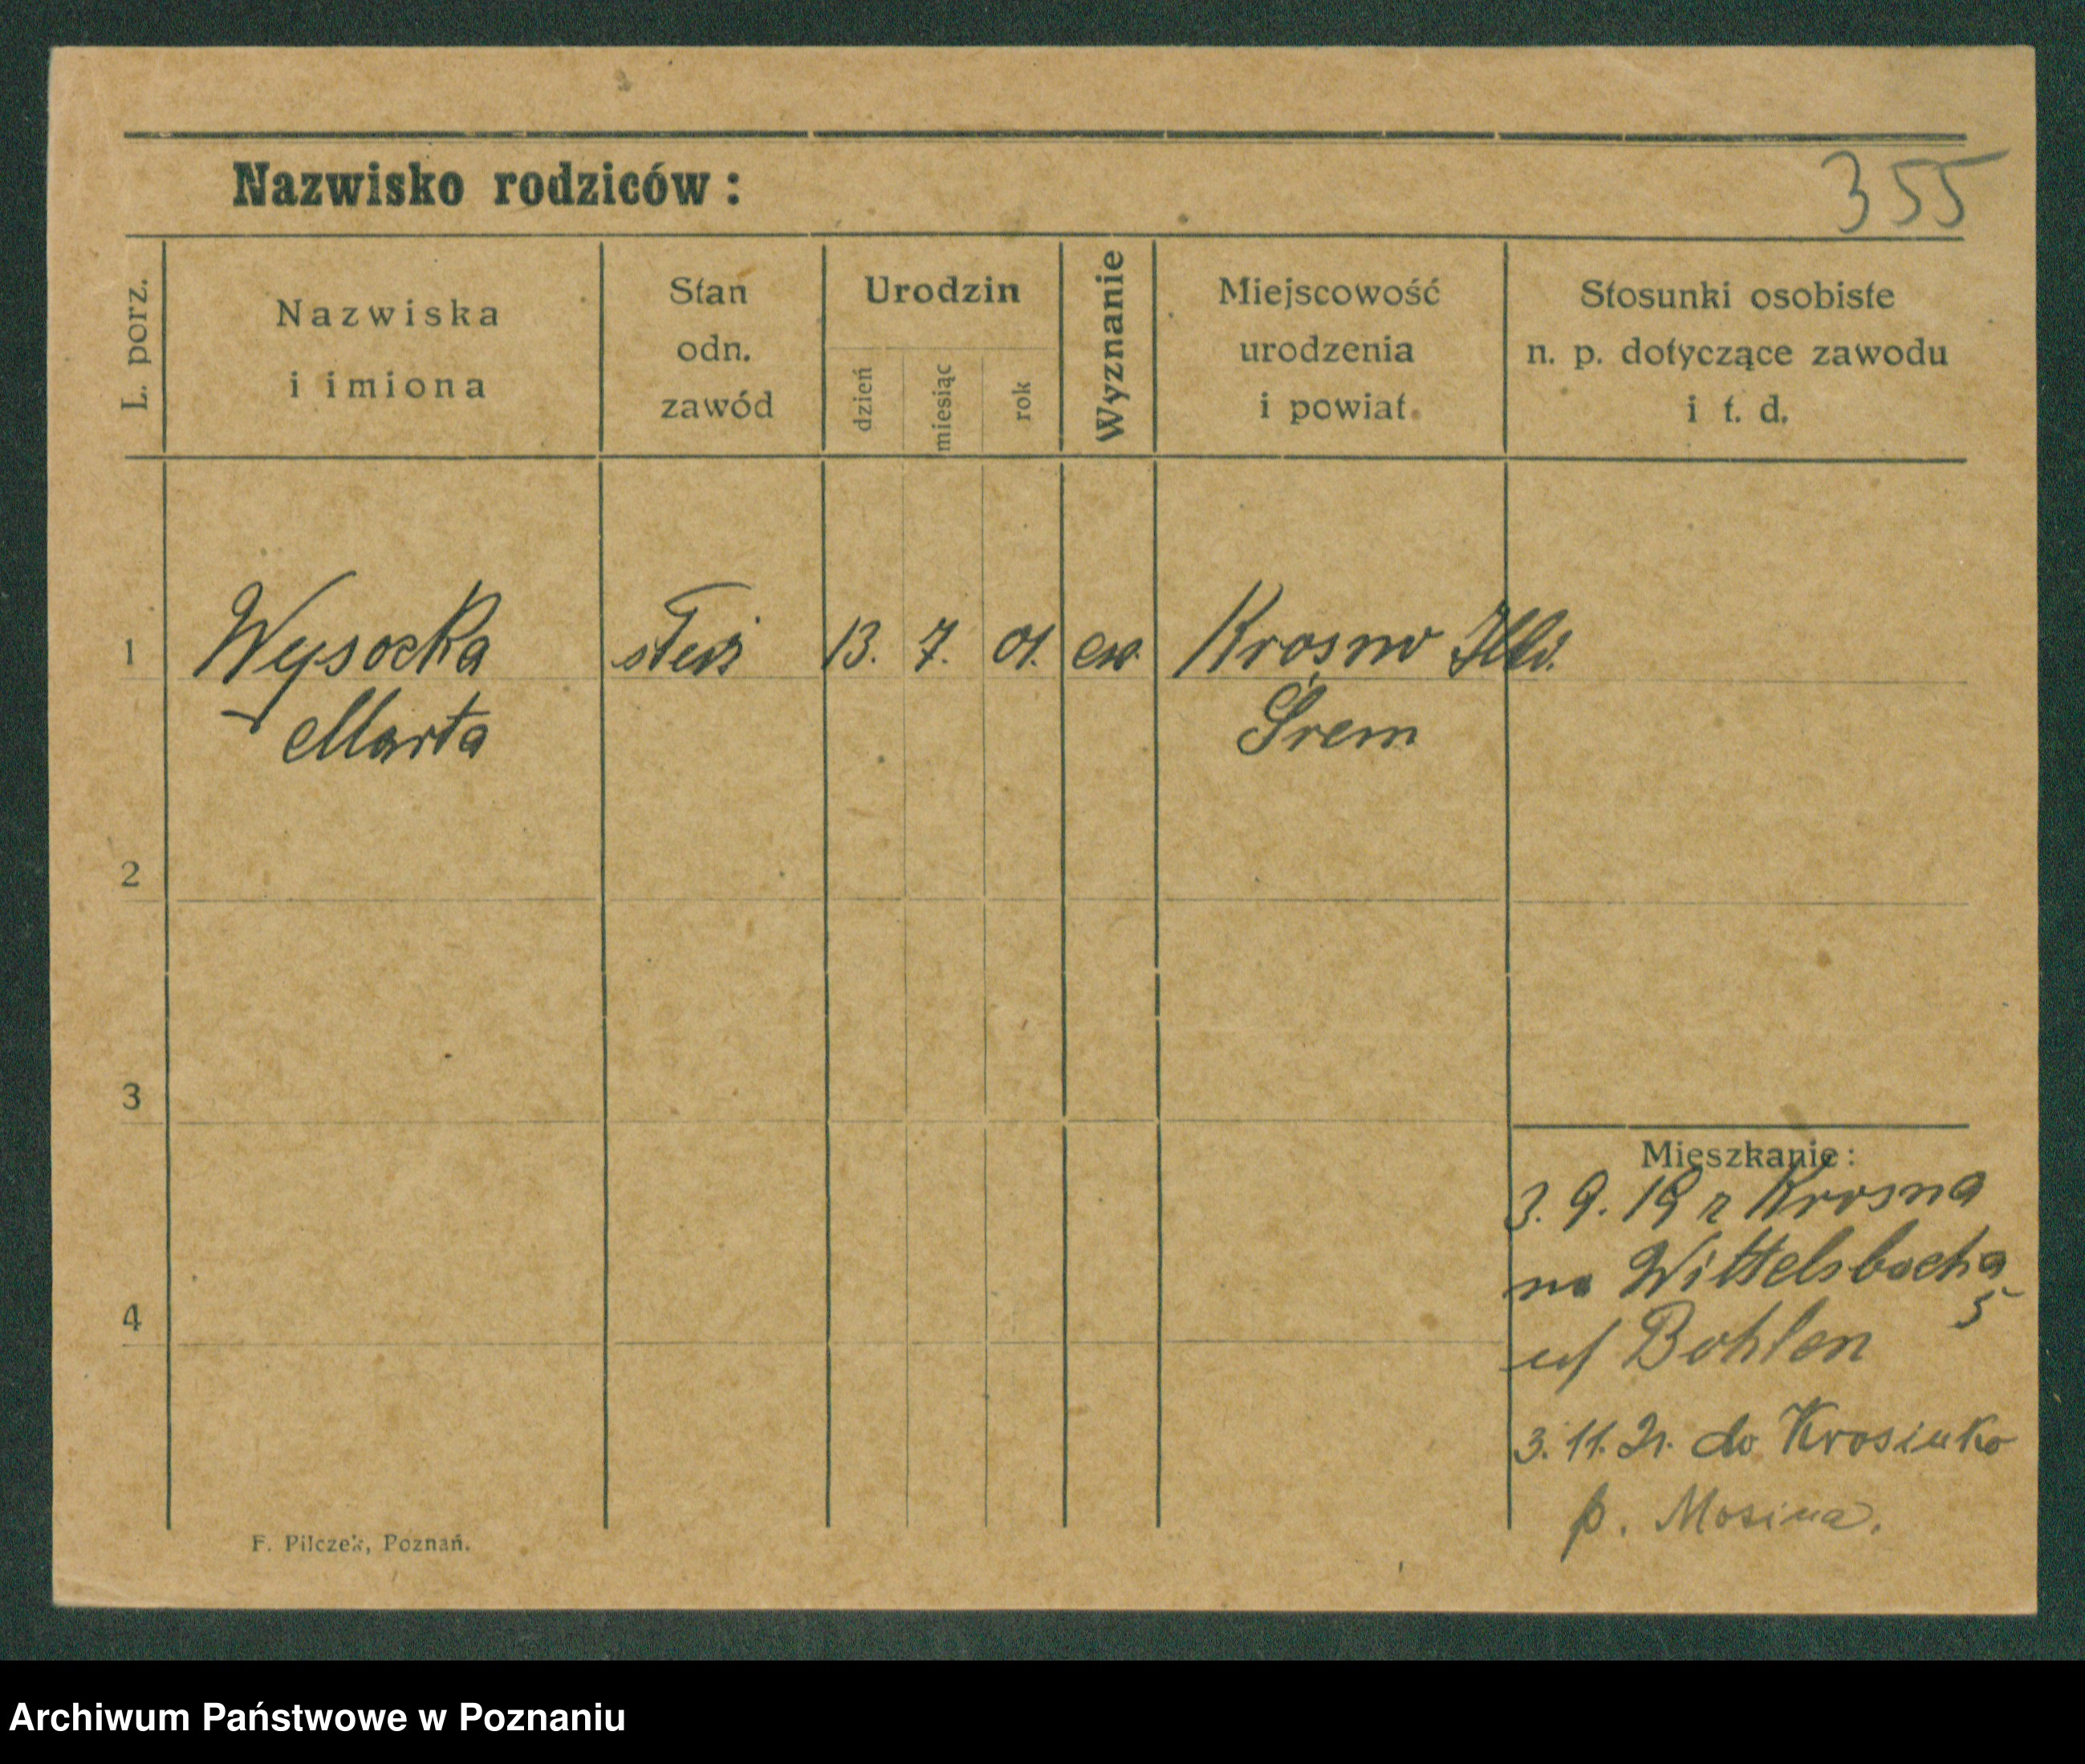 Nazwisko rodziców:
355
L. porz.
Nazwiska
i imiona
Stan
odn.
zawód
Urodzin
dzień
miesiąc
rok
Wyznanie
Miejscowość
urodzenia
i powiat.
Stosunki osobiste
n. p. dotyczące zawodu
i t. d.
1
Wysocka
Marta
13. 7. 01. ew.
Krosno
Śrem
2
3
4
Mieszkanie:
3. 9. 19 z Krosna
na Wittelsbacha
5
Bohlen
3. 11. 21. do Krosinko
p. Mosina.
F. Pilczek, Poznań.
Archiwum Państwowe w Poznaniu